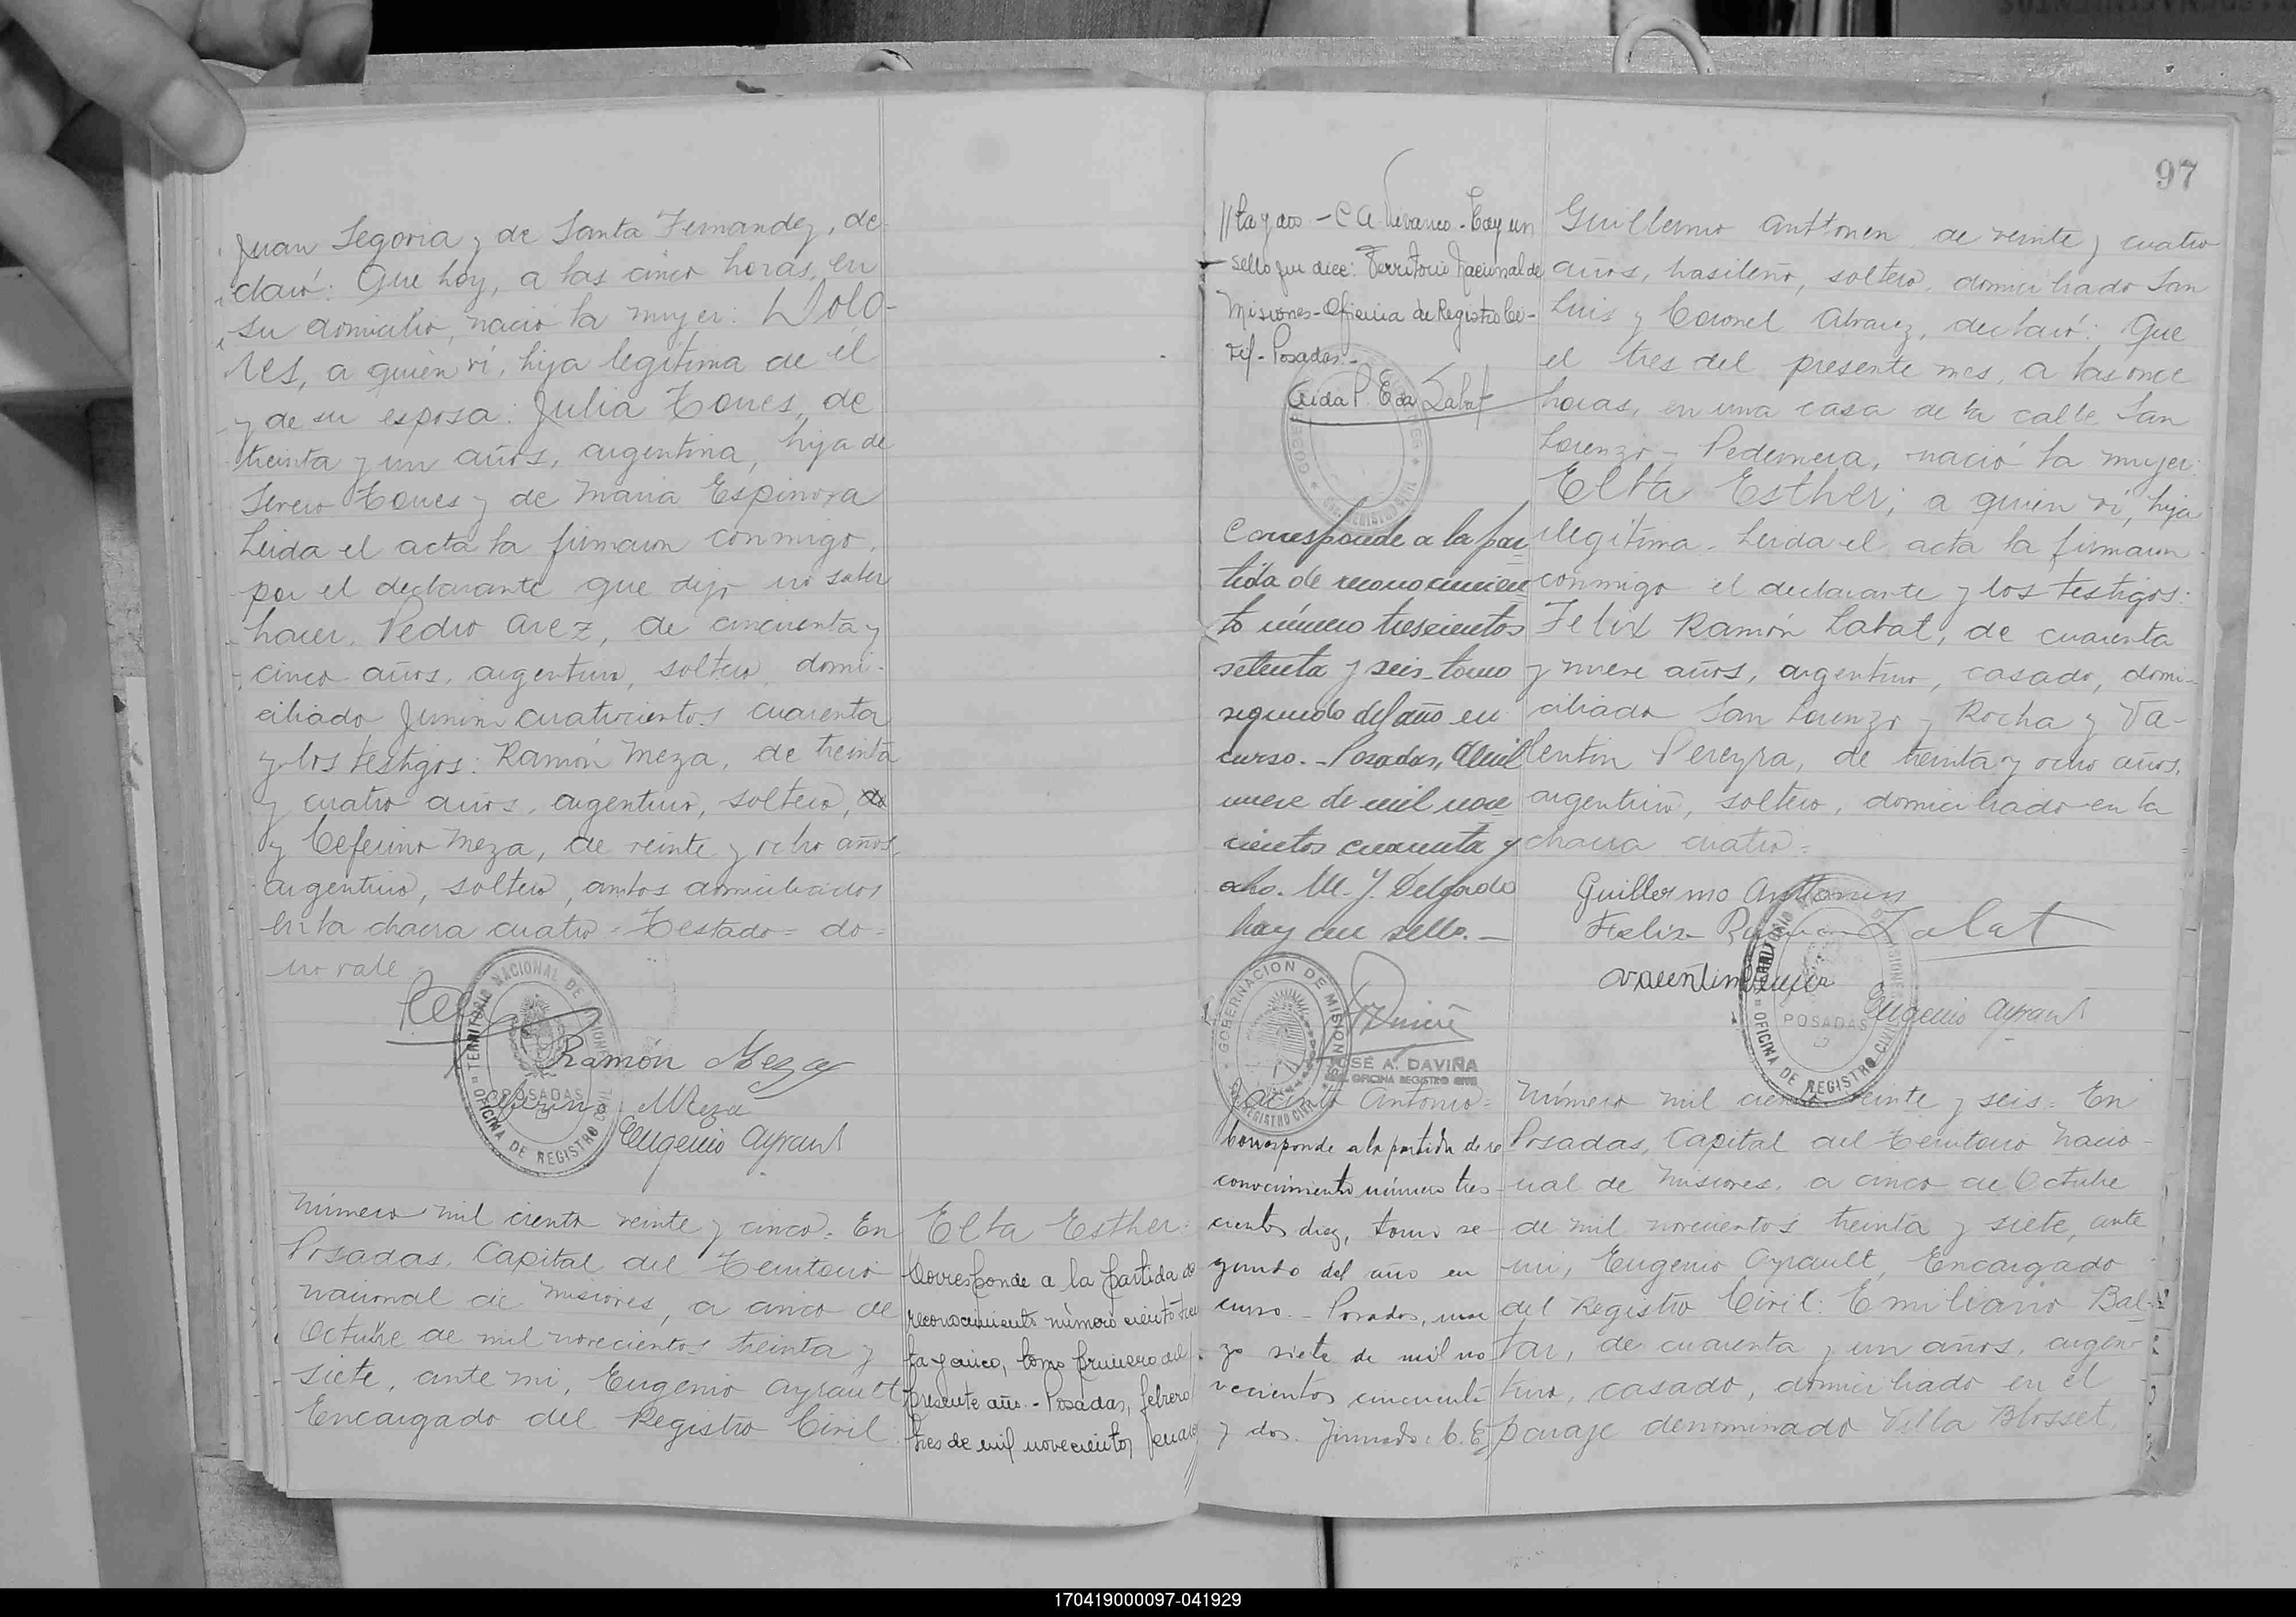 Juan Segovia y de Santa Fernandez, de-
claró: Que hoy, a las cinco horas, en
su domicilio, nació la mujer: Dolo-
res, a quien ví, hija legítima de él
y de su esposa: Julia Torres, de
treinta y un años, argentina, hija de
Torres y de Maria Espinosa
Leida el acta la firmaron conmigo,
por el declarante que dijo no saber
hacer, Pedro Arez, de cincuenta y
cinco años, argentino, soltero, domi-
ciliado Junin cuatrocientos cuarenta
y los testigos: Ramón Meza, de treinta
y cuatro años, argentino, soltero, do
y Ceferino Meza, de veinte y ocho años,
argentino, soltero, ambos domiciliados
en la chacra cuatro = Testado = do =
no vale =
TERRITORIO NACIONAL DE MISIONES
POSADAS
OFICINA DE REGISTRO CIVIL
Ramón Meza
Meza
Eugenio Ayrault
Número mil ciento veinte y cinco = En
Posadas, Capital del Territorio
nacional de Misiones, a cinco de
Octubre de mil novecientos treinta y
siete, ante mi, Eugenio Ayrault
Encargado del Registro Civil:
Elba Esther =
Corresponde a la partida de
reconocimiento número ciento trein
ta y cinco, tomo primero del
presente año. - Posadas, febrero
tres de mil novecientos cuaren
97
//ta y dos - C A - Hay un
sello que dice: Territorio Nacional de
Misiones - Oficina de Registro Ci-
vil - Posadas. -
Labat
Corresponde a la par
tida de reconocimien
to número trescientos
setenta y seis tomo
segundo del año en
curso. - Posadas, Abril
nueve de mil nove
cientos cuarenta y
ocho. M. J. Delgado
hay un sello. -
GOBERNACION DE MISIONES
REGISTRO CIVIL
JOSÉ A. DAVIÑA
OFICINA REGISTRO CIVIL
Jacinto Antonio =
Corresponde a la partida de re
conocimiento número tres
cientos diez, tomo se
gundo del año en
curso. - Posadas, mar
zo siete de mil no
vecientos cincuenta
y dos. Firmado: C. E.
Guillermo Anttonen de veinte y cuatro
años, brasileño, soltero, domiciliado San
Luis y Coronel Alvarez, declaró: Que
el tres del presente mes, a las once
horas, en una casa de la calle San
Lorenzo - Pedernera, nació la mujer:
Elba Esther; a quien ví, hija
ilegítima. Leida el acta la firmaron
conmigo el declarante y los testigos:
Felix Ramón Labat, de cuarenta
y nueve años, argentino, casado, domi-
ciliado San Lorenzo y Rocha y Va-
lentin Pereyra, de treinta y ocho años,
argentino, soltero, domiciliado en la
chacra cuatro =
Guillermo Anttonen
Felix Ramon Labat
TERRITORIO NACIONAL DE MISIONES
POSADAS
OFICINA DE REGISTRO CIVIL
Eugenio Ayrault
Número mil ciento veinte y seis = En
Posadas, Capital del Territorio Nacio-
nal de Misiones, a cinco de Octubre
de mil novecientos treinta y siete, ante
mi, Eugenio Ayrault, Encargado
del Registro Civil: Emiliano Bal-
tar, de cuarenta y un años, argen-
tino, casado, domiciliado en el
paraje denominado Villa Blosset,
170419000097-041929